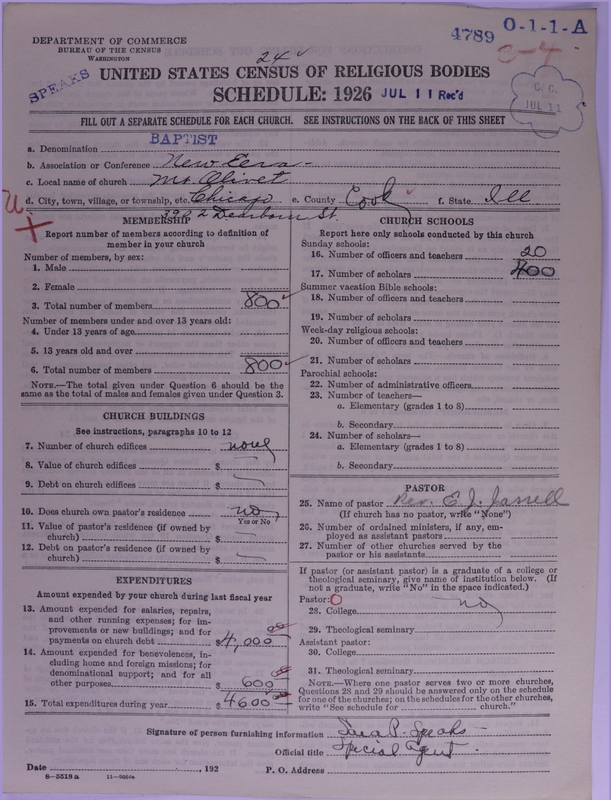 DEPARTMENT OF COMMERCE
BUREAU OF THE CENSUS
WASHINGTON
4789 O-1-1-A
24
SPEAKS
UNITED STATES CENSUS OF RELIGIOUS BODIES
SCHEDULE: 1926 JUL 11 Rec'd
C. C.
JUL 11
FILL OUT A SEPARATE SCHEDULE FOR EACH CHURCH. SEE INSTRUCTIONS ON THE BACK OF THIS SHEET
a. Denomination BAPTIST
b. Association or Conference New Eera
c. Local name of church Mt Olivet
d. City, town, village, or township, etc. Chicago e. County Cook f. State Ill
Dearborn St.
MEMBERSHIP
Report number of members according to definition of
member in your church
Number of members, by sex:
1. Male
2. Female
3. Total number of members 800
Number of members under and over 13 years old:
4. Under 13 years of age
5. 13 years old and over
6. Total number of members 800
NOTE.—The total given under Question 6 should be
same as the total of males and females given under Question 3.
CHURCH BUILDINGS
See instructions, paragraphs 10 to 12
7. Number of church edifices none
8. Value of church edifices $
9. Debt on church edifices $
10. Does church own pastor's residence no
Yes or No
11. Value of pastor's residence (if owned by
church) $
12. Debt on pastor's residence (if owned by
church) $
EXPENDITURES
Amount expended by your church during last fiscal year
13. Amount expended for salaries, repairs,
and other running expenses; for im-
provements or new buildings; and for
payments on church debt $4,000
14. Amount expended for benevolences, in-
cluding home and foreign missions; for
denominational support; and for all
other purposes $600
15. Total expenditures during year $4600
CHURCH SCHOOLS
Report here only schools conducted by this church
Sunday schools:
16. Number of officers and teachers 20
17. Number of scholars 400
Summer vacation Bible schools:
18. Number of officers and teachers
19. Number of scholars
Week-day religious schools:
20. Number of officers and teachers
21. Number of scholars
Parochial schools:
22. Number of administrative officers
23. Number of teachers—
a. Elementary (grades 1 to 8)
b. Secondary
24. Number of scholars—
a. Elementary (grades 1 to 8)
b. Secondary
PASTOR
25. Name of pastor Rev. E. J.
(If church has no pastor, write "None")
26. Number of ordained ministers, if any, em-
ployed as assistant pastors
27. Number of other churches served by the
pastor or his assistants
If pastor (or assistant pastor) is a graduate of a college or
theological seminary, give name of institution below. (If
not a graduate, write "No" in the space indicated.)
Pastor:
28. College no
29. Theological seminary
Assistant pastor:
30. College
31. Theological seminary
NOTE.—Where one pastor serves two or more churches,
Questions 28 and 29 should be answered only on the schedule
for one of the churches; on the schedules for the other churches,
write "See schedule for church."
Signature of person furnishing information P. Speaks
Official title Special Agent
Date , 192 P. O. Address
8-5518a